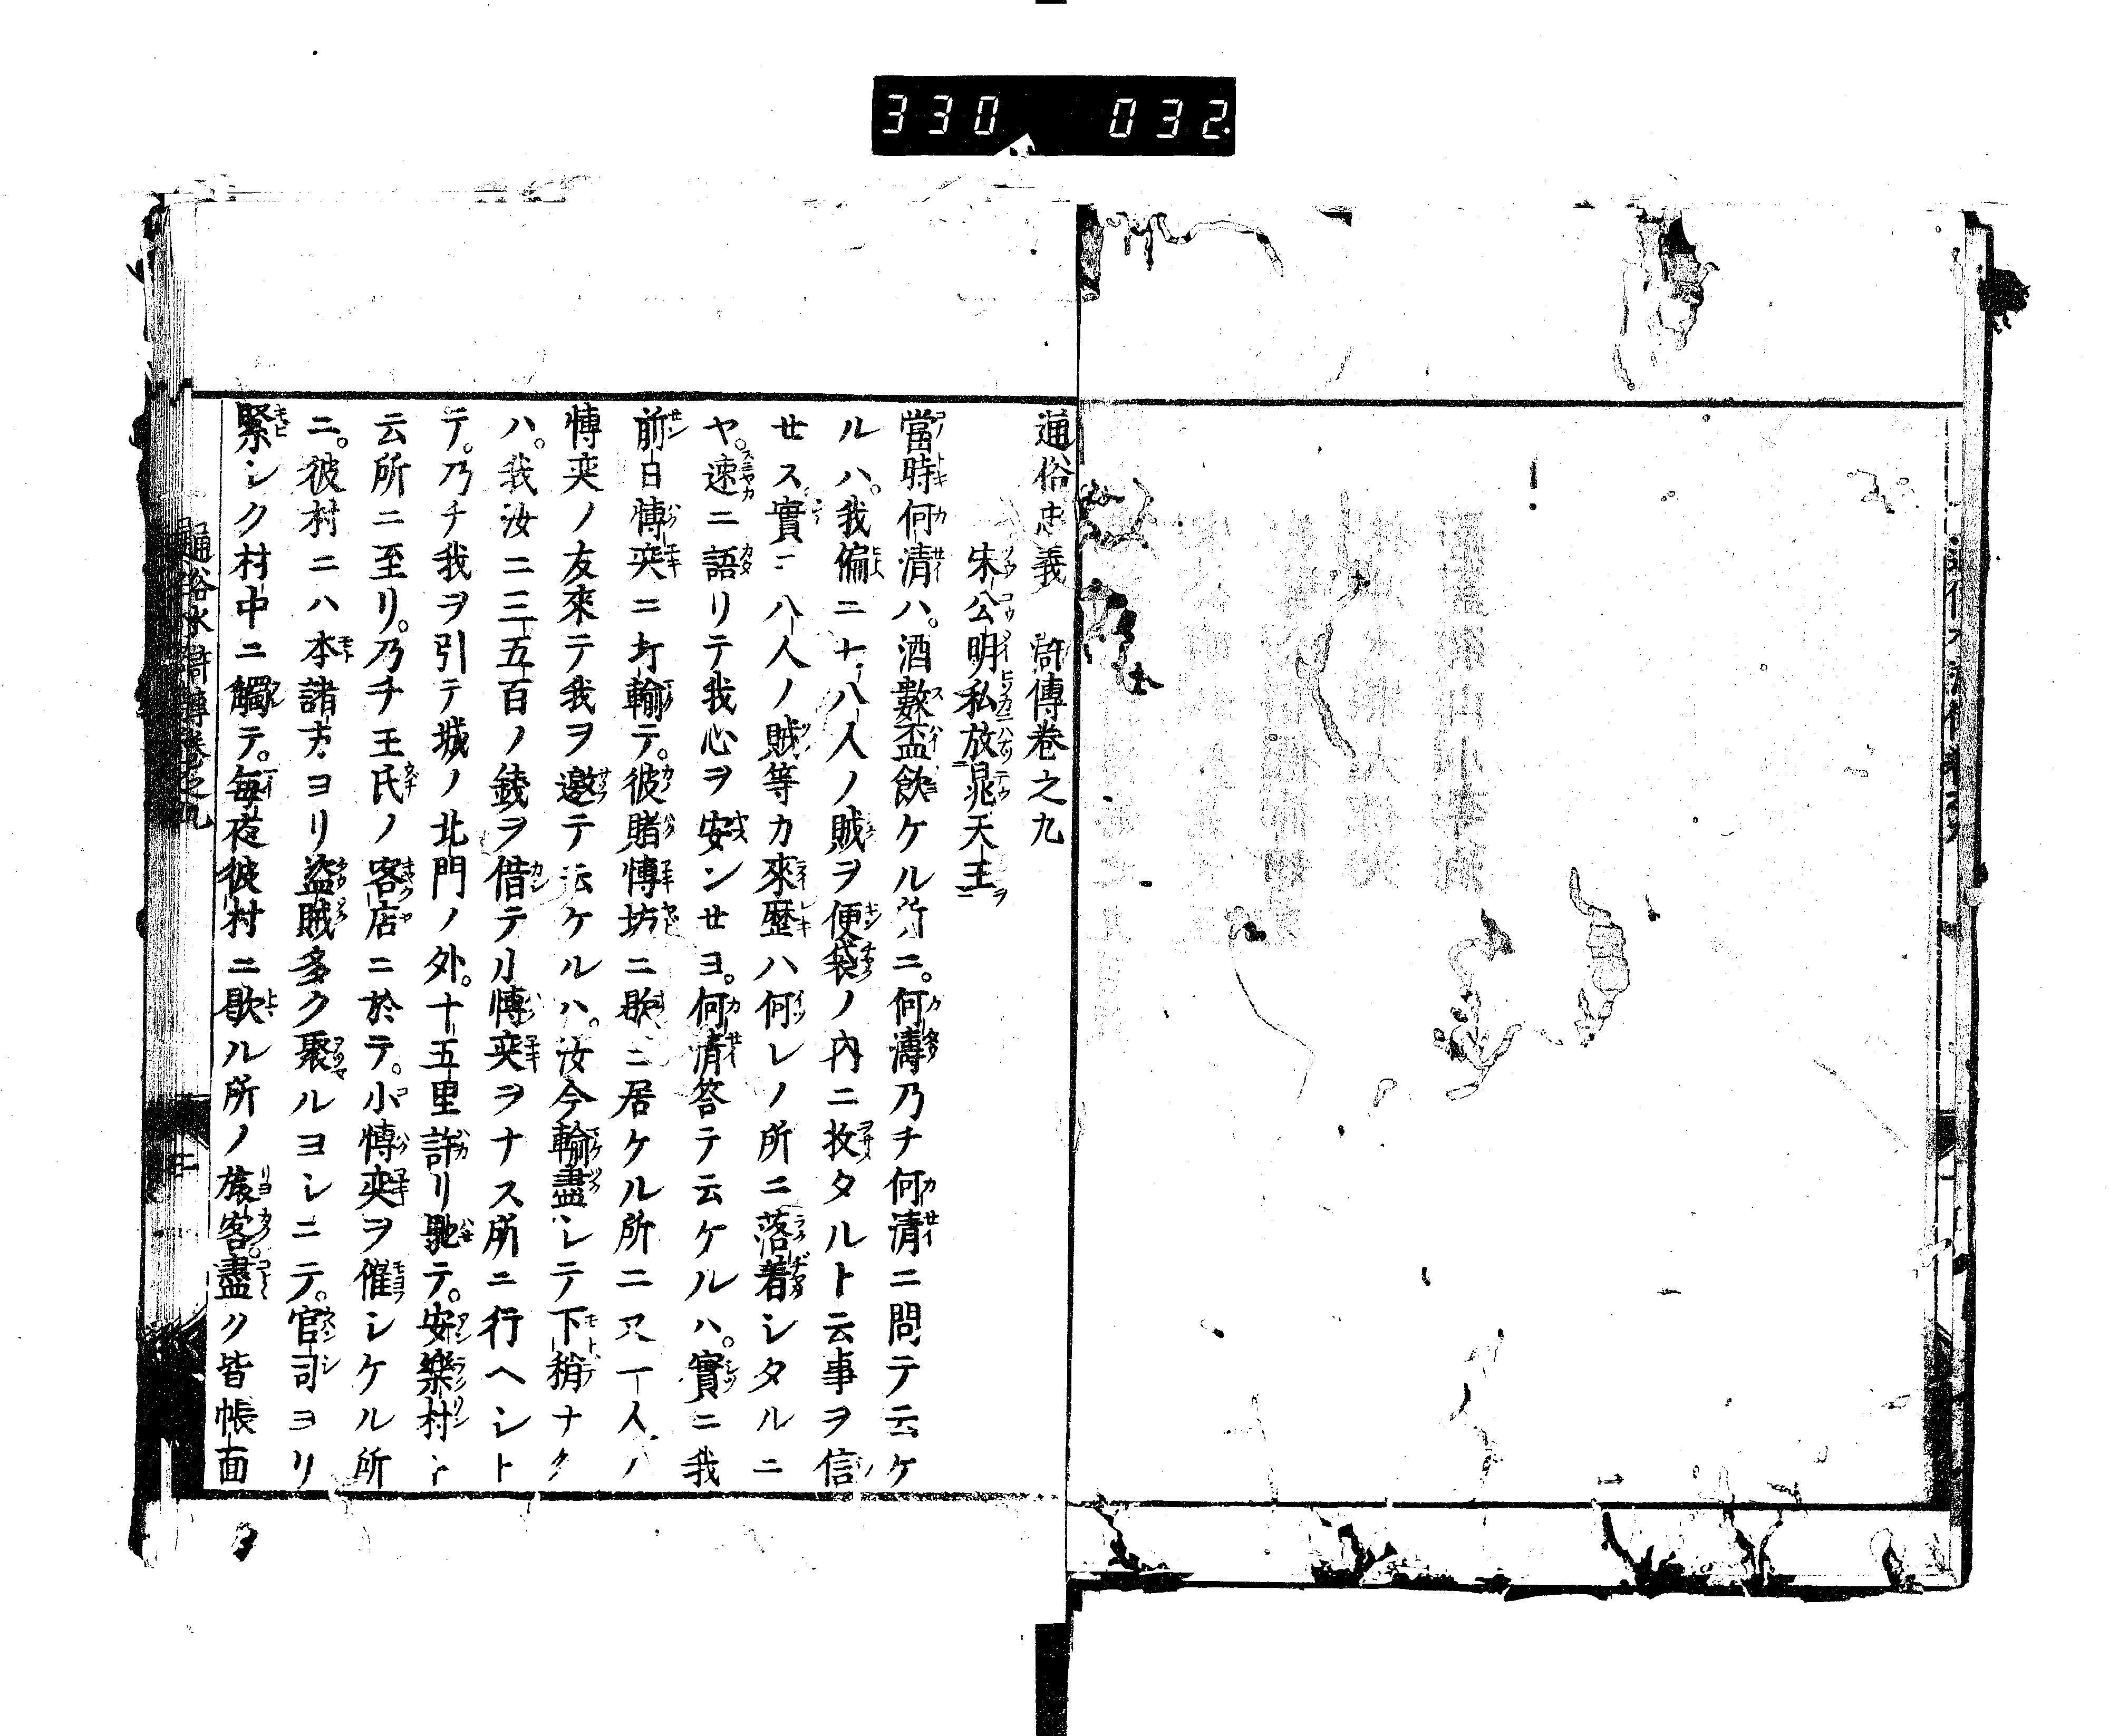 330 032
通俗忠義 滸傳卷之九
宋公明私放晁天王
當時何清ハ。酒數盃飲ケル ニ。何濤乃チ何清ニ問テ云ケ
ルハ。我偏ニ 八人ノ賊ヲ便袋ノ内ニ收タルト云事ヲ信
セス實ニ八人ノ賊等カ來歷ハ何レノ所ニ落着シタルニ
ヤ。速ニ語リテ我心ヲ安ンセヨ。何清答テ云ケルハ。實ニ我
前日愽奕ニ打輸テ。彼賭愽坊ニ歇ニ居ケル所ニ又一人ノ
愽奕ノ友來テ我ヲ邀テ云ケルハ。汝今輸盡シテ下稍ナク
ハ。我汝ニ三五百ノ錢ヲ借テ小愽奕ヲナス所ニ行ヘシト
テ。乃チ我ヲ引テ城ノ北門ノ外。十五里許リ馳テ。安樂村ト
云所ニ至リ。乃チ王氏ノ客店ニ於テ。小愽奕ヲ催シケル所
ニ。彼村ニハ本諸方ヨリ盜賊多ク聚ルヨシニテ。官司ヨリ
緊シク村中ニ觸テ。每夜彼村ニ歇ル所ノ旅客。盡ク皆帳面
通俗水滸傳卷之九